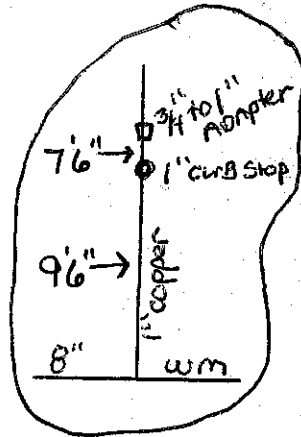 3/4" to 1"
Adapter
7'6"→
1" curb stop
9'6"→
1" copper
8" wm